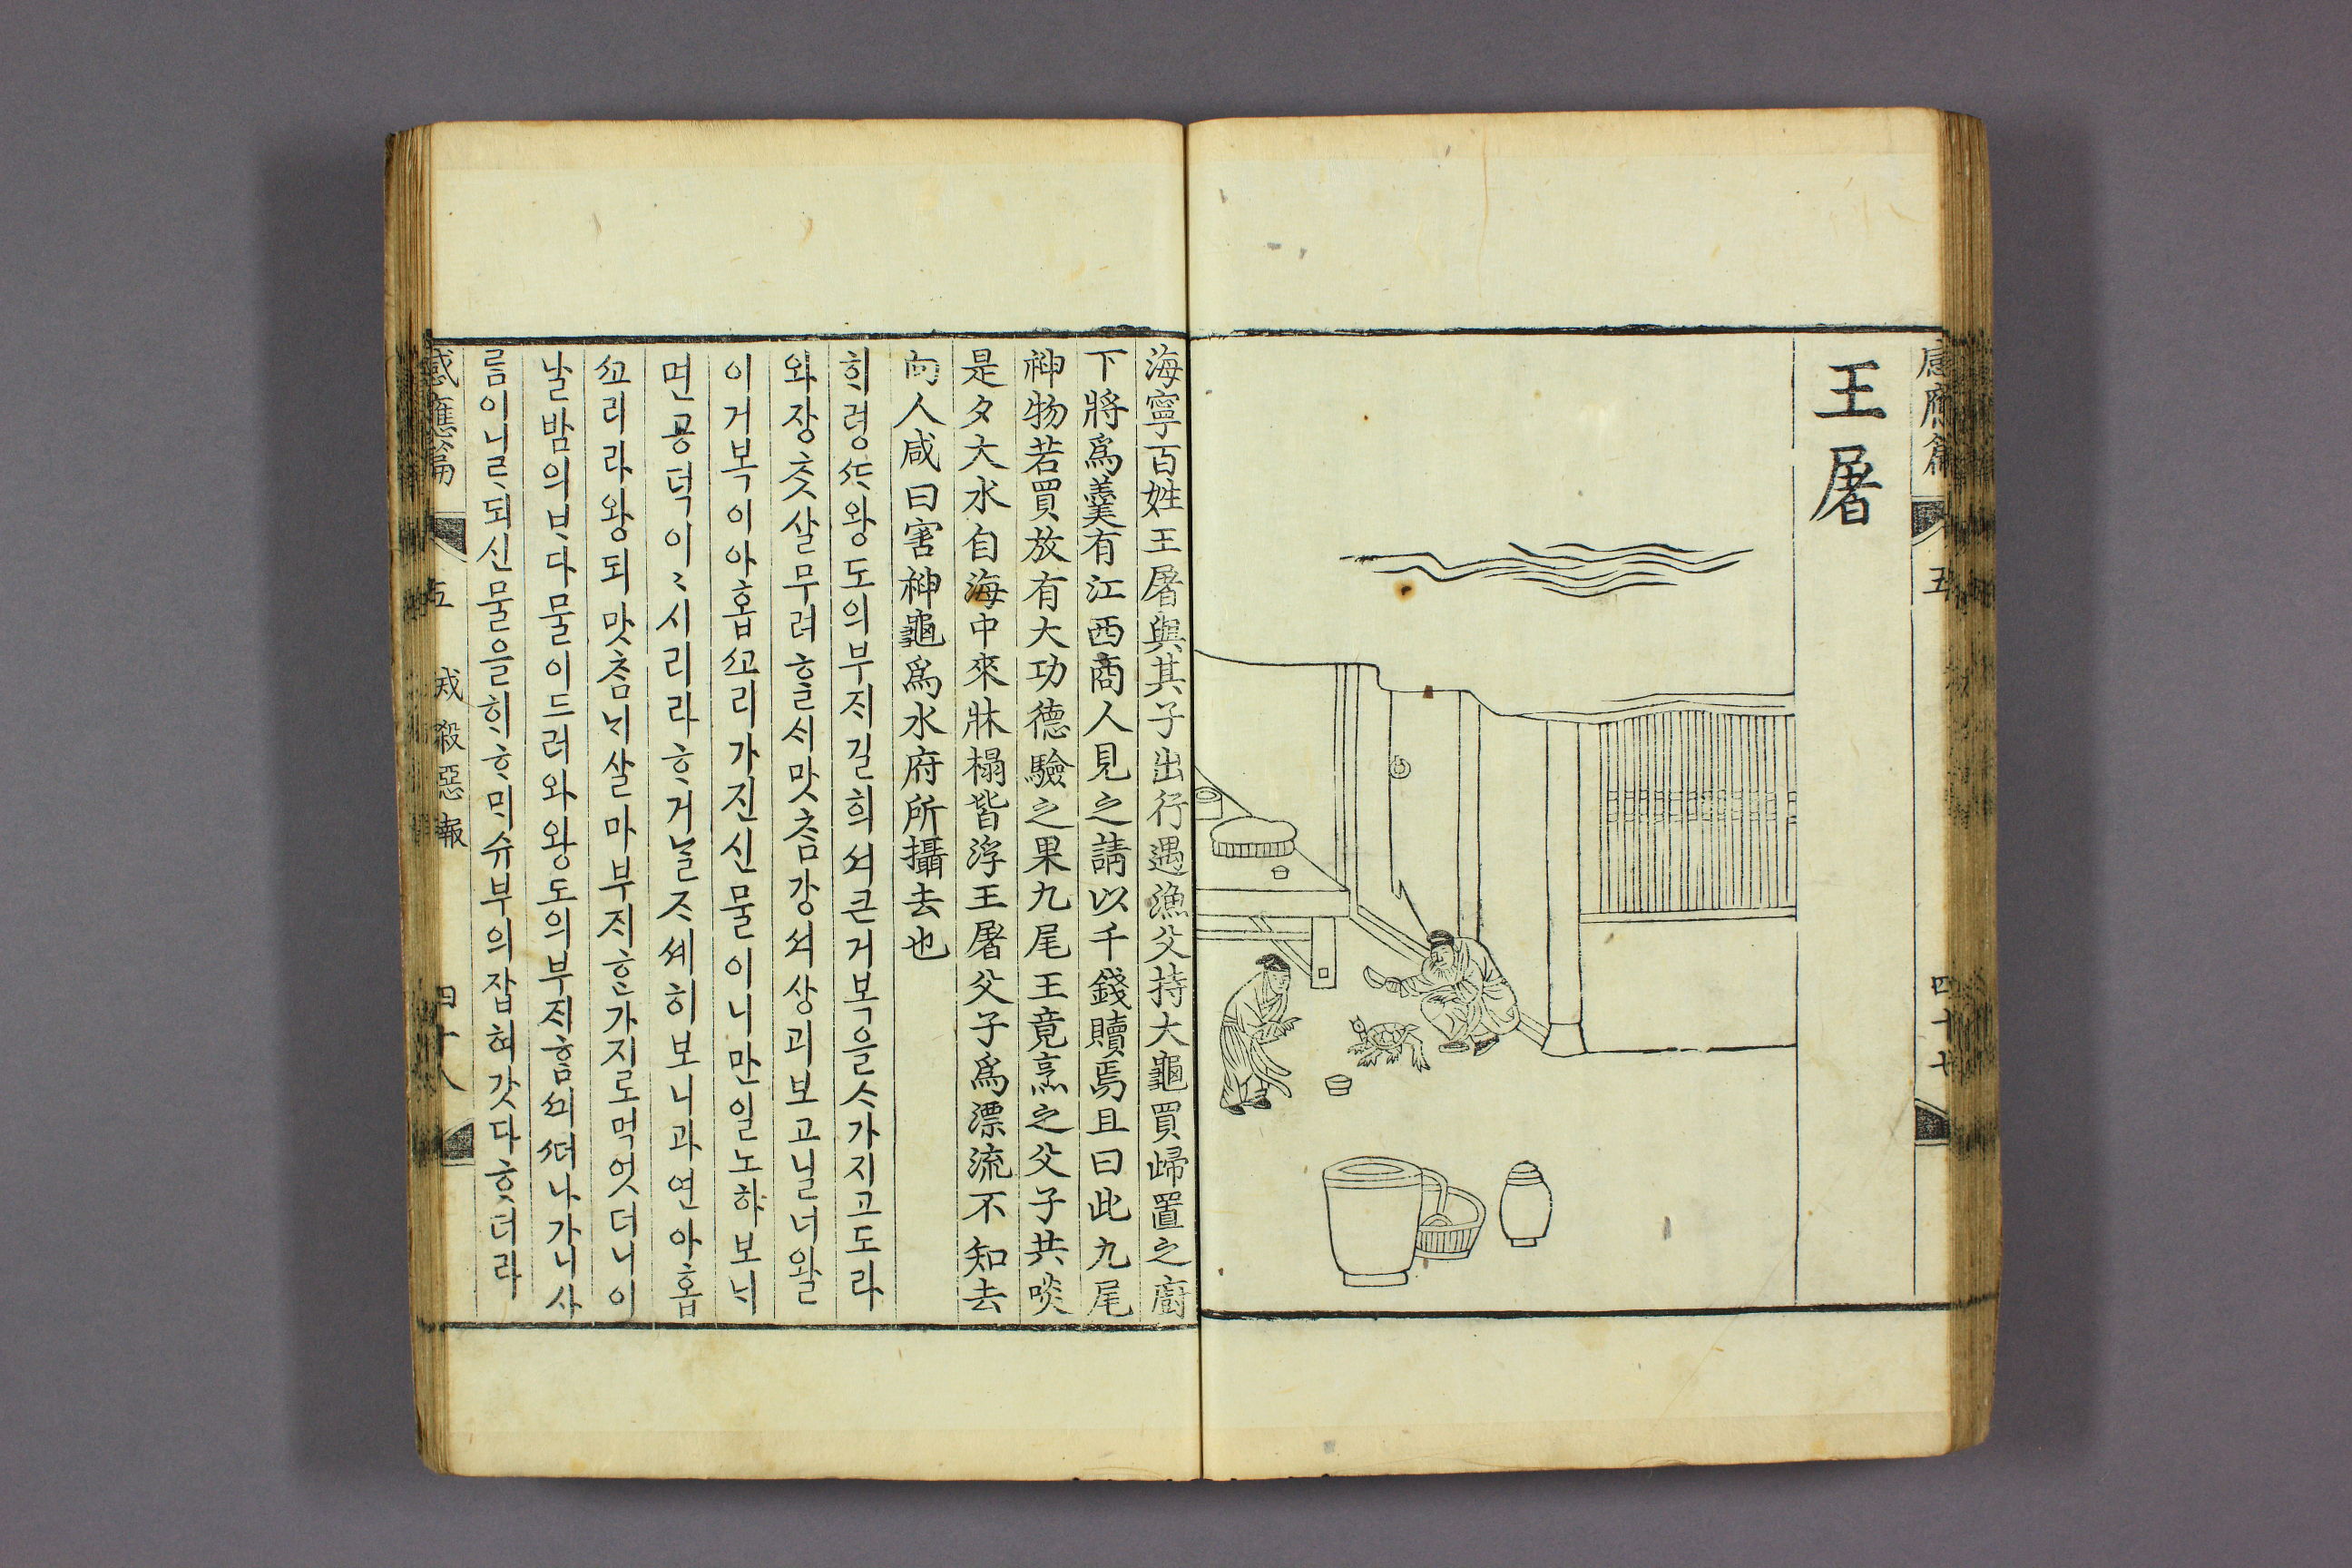 感應篇 五 四十七
王屠
海寧百姓王屠與其子出行遇漁父持大龜買歸置之廚
下將爲羹有江西商人見之請以千錢贖焉且曰此九尾
神物若買放有大功德驗之果九尾王竟烹之父子共啖
是夕大水自海中來牀榻皆浮王屠父子爲漂流不知去
向人咸曰害神龜爲水府所攝去也
ᄒᆡ령ᄯᆞ왕도의부ᄌᆡ길희셔큰거북을ᄉᆞ가지고도라
와장ᄎᆞᆺ살무려ᄒᆞᆯᄉᆡ맛ᄎᆞᆷ강셔상괴보고닐너왈
이거복이아홉ᄭᅩ리가진신물이니만일노하보ᄂᆡ
면공덕이〻시리라ᄒᆞ거ᄂᆞᆯᄌᆞ셰히보니과연아홉
ᄭᅩ리라왕되맛ᄎᆞᆷᄂᆡ살마부ᄌᆡᄒᆞᆫ가지로먹엇더니이
날밤의ᄇᆞ다물이드러와왕도의부ᄌᆡ홈ᄭᅴᄯᅥ나가니사
ᄅᆞᆷ이니ᄅᆞ되신물을ᄒᆡᄒᆞᄆᆡ슈부의잡혀갓다ᄒᆞ더라
感應篇 五 戒殺惡報 四十八